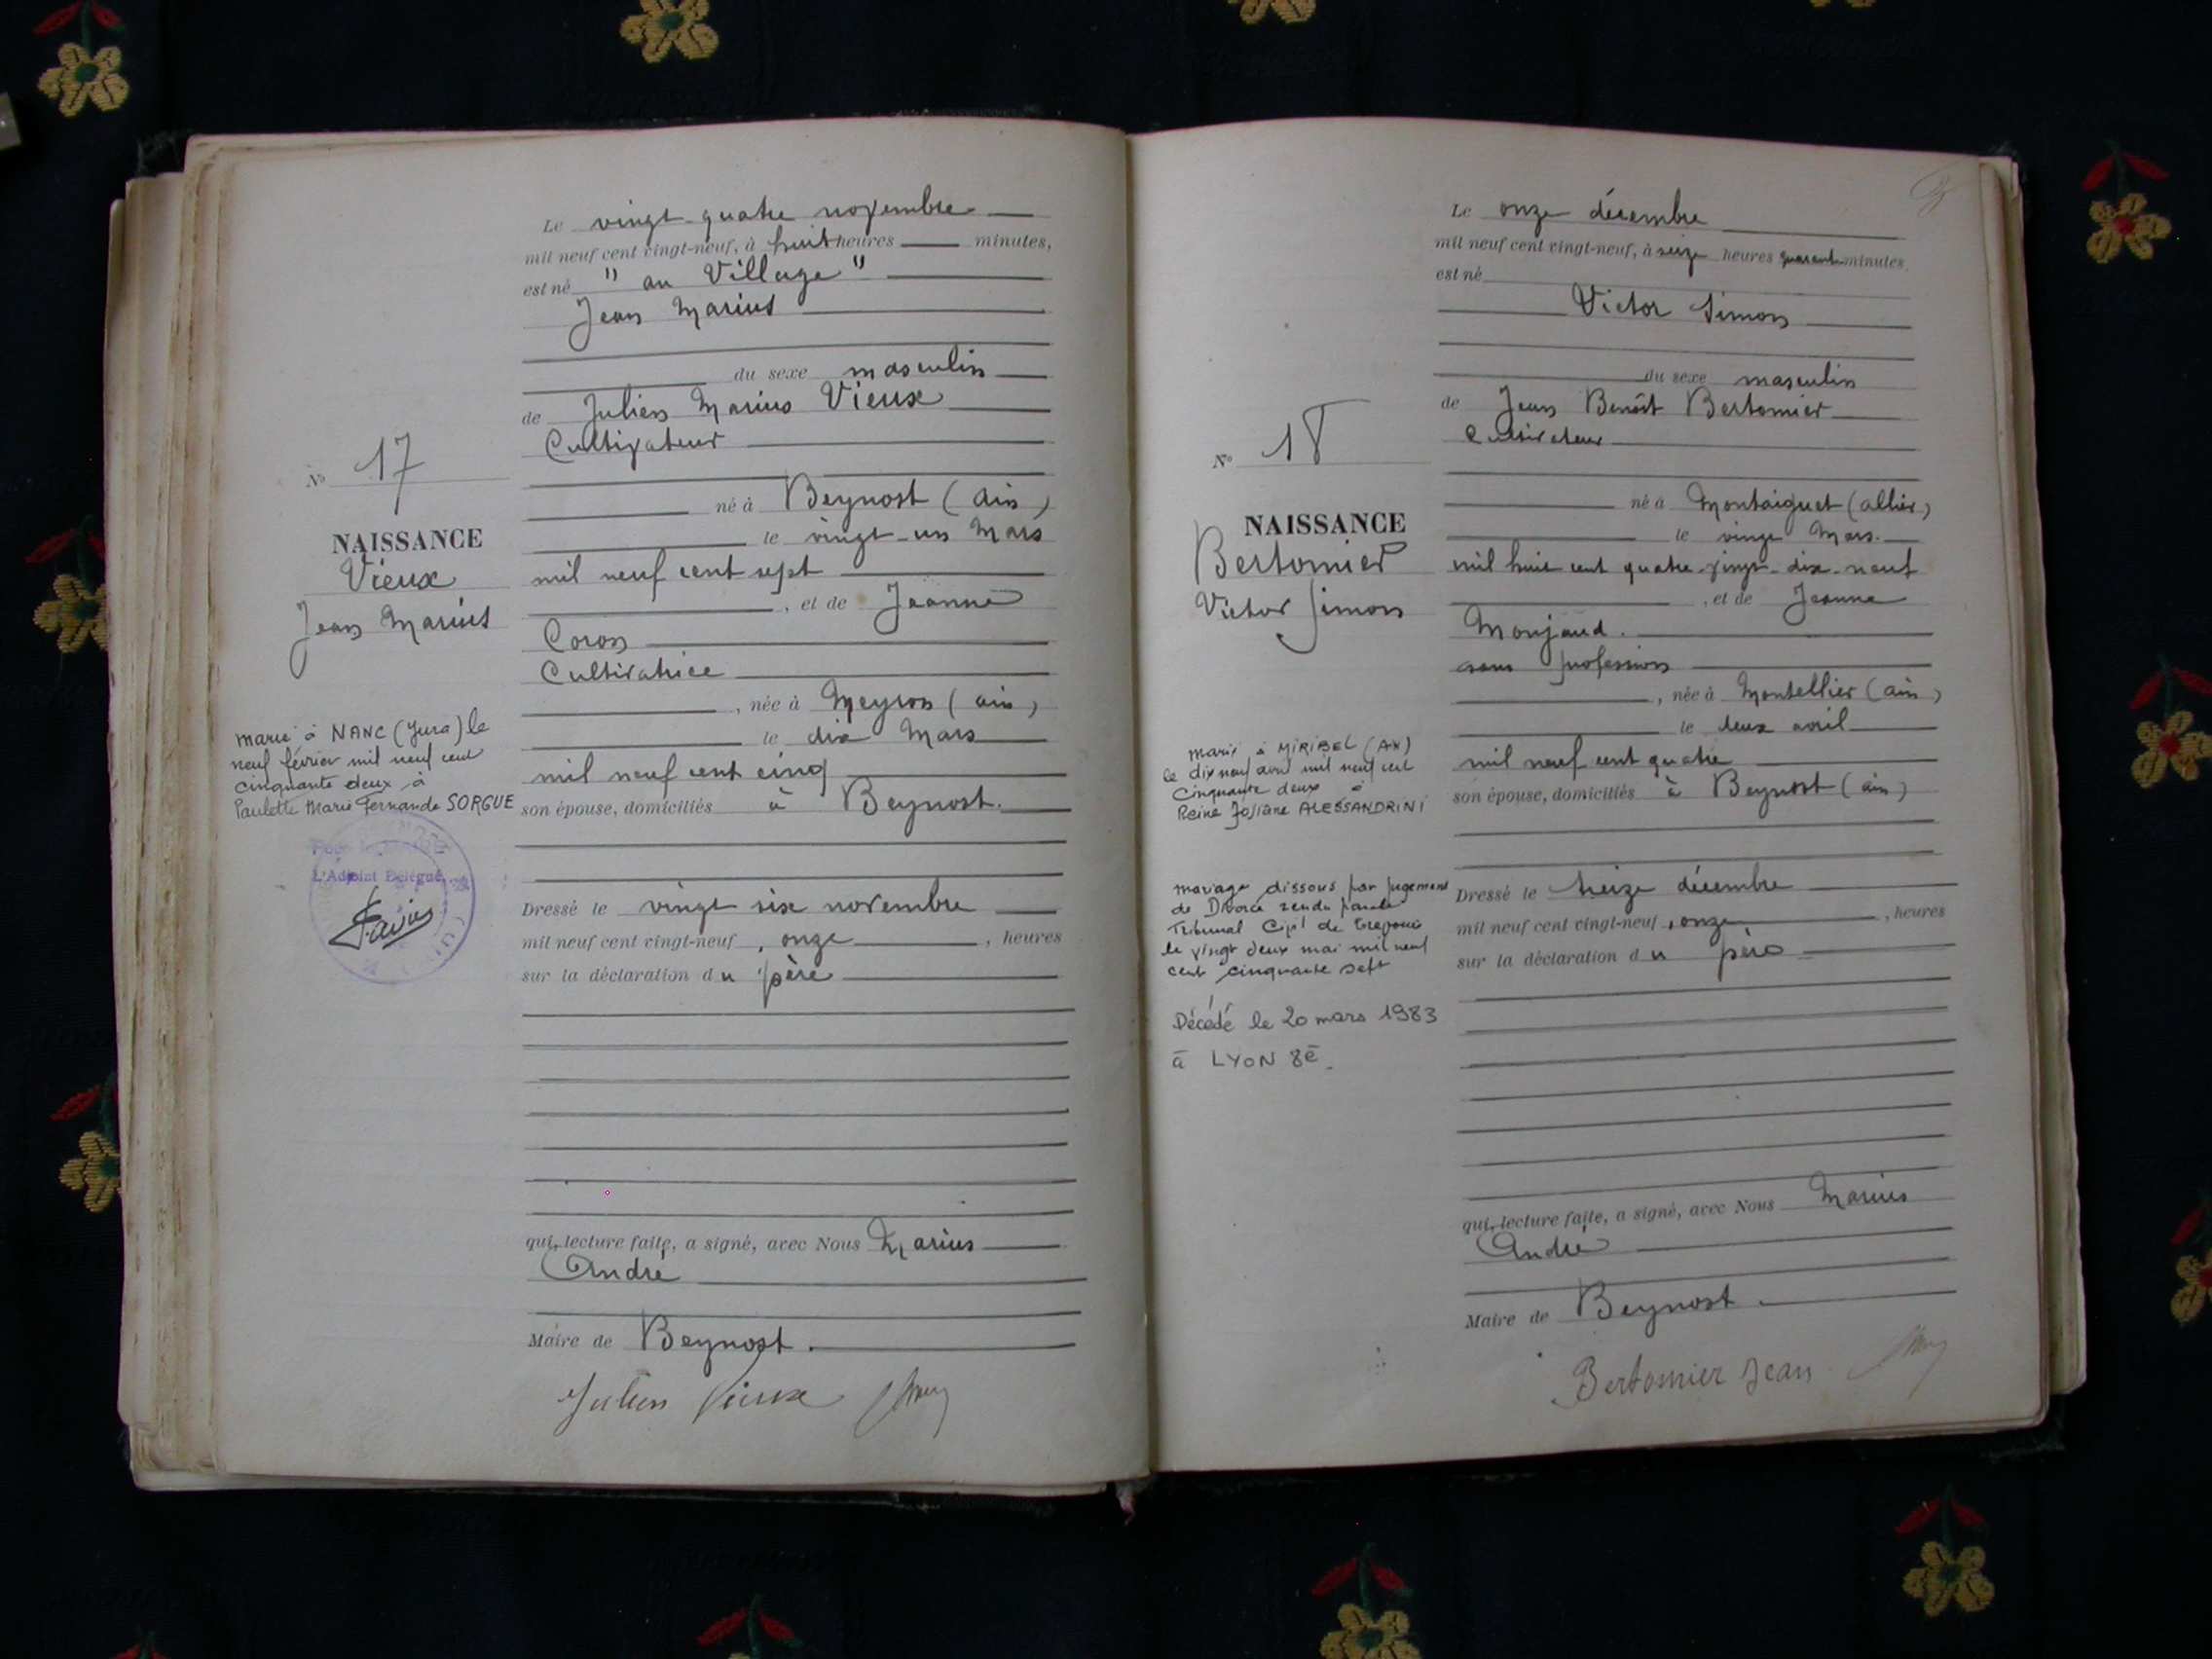 Le vingt-quatre novembre
mil neuf cent vingt-neuf, à huit heures minutes,
est né "au Village"
Jean Marius
du sexe masculin
de Julien Marius Vieux
Cultivateur
né à Beynost (Ain)
le vingt-un Mars
mil neuf cent sept
, et de Jeanne
Coron
Cultivatrice
, née à Meyron (ain)
le dix Mars
mil neuf cent cinq
son épouse, domiciliés à Beynost.
Dressé le vingt six novembre
mil neuf cent vingt-neuf, onze , heures
sur la déclaration du père
qui, lecture faite, a signé, avec Nous Marius
André
Maire de Beynost.
Julien Vieux
N° 17
NAISSANCE
Vieux
Jean Marius
marié à NANC (Jura) le
neuf février mil neuf cent
cinquante deux à
Paulette Marie Fernande SORGUE
L'Adjoint Délégué,
Le onze décembre
mil neuf cent vingt-neuf, à seize heures quarante minutes,
est né
Victor Simon
du sexe masculin
de Jean Benoît Bertomier
Cultivateur
né à Montaiguet (allier)
le vingt Mars.
mil huit cent quatre-vingt-dix-neuf
, et de Jeanne
Monjaud.
sans profession
, née à Montellier (ain)
le deux avril
mil neuf cent quatre
son épouse, domiciliés à Beynost (ain)
Dressé le treize décembre
mil neuf cent vingt-neuf, onze , heures
sur la déclaration du père
qui, lecture faite, a signé, avec Nous Marius
André
Maire de Beynost
Bertomier Jean
N° 18
NAISSANCE
Bertomier
Victor Simon
marié à MIRIBEL (Ain)
le dix neuf avril mil neuf cent
cinquante deux à
Reine Josiane ALESSANDRINI
mariage dissous par jugement
de Divorce rendu par le
Tribunal Civil de Trévoux
le vingt deux mai mil neuf
cent cinquante sept
Décédé le 20 mars 1983
à LYON 8è